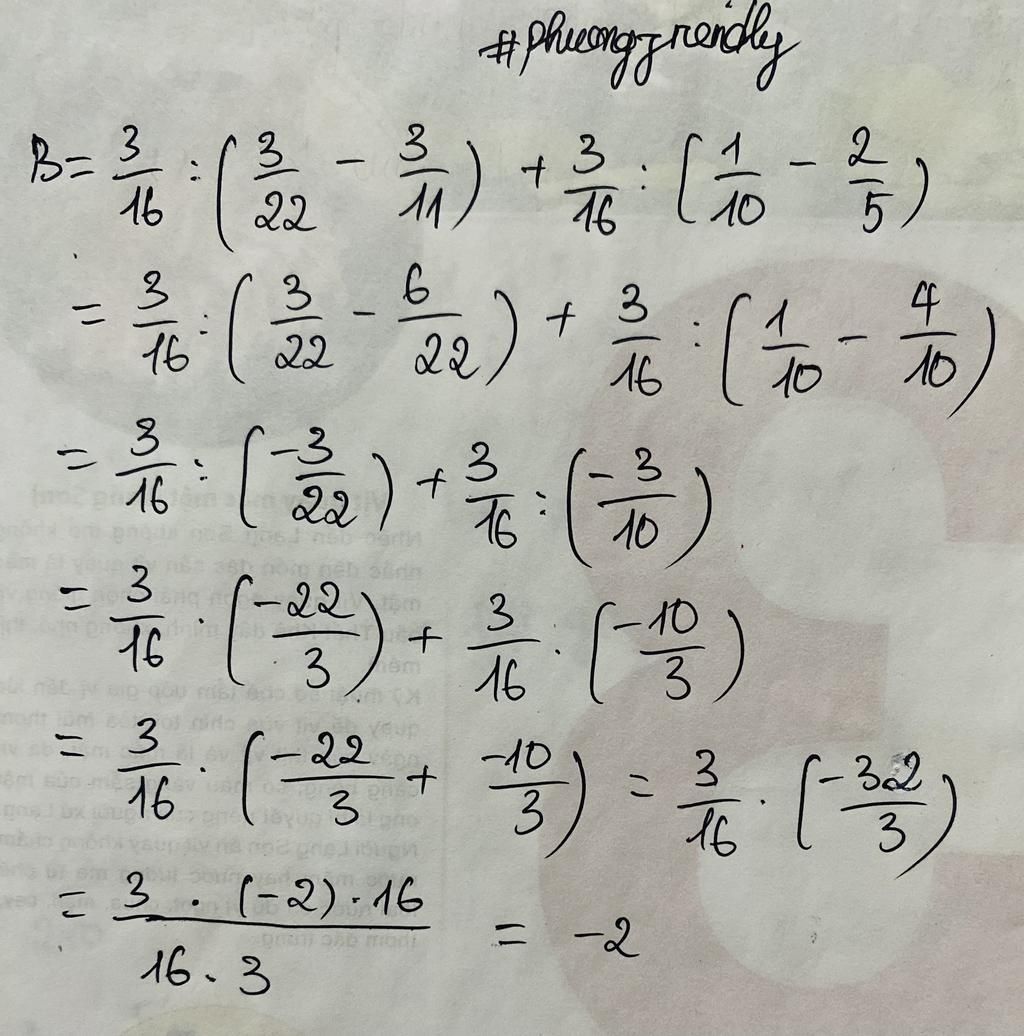 #phuongfriendly
B = 3/16 : (3/22 - 3/11) + 3/16 : (1/10 - 2/5)
= 3/16 : (3/22 - 6/22) + 3/16 : (1/10 - 4/10)
= 3/16 : (-3/22) + 3/16 : (-3/10)
= 3/16 . (-22/3) + 3/16 . (-10/3)
= 3/16 . (-22/3 + -10/3) = 3/16 . (-32/3)
= 3 . (-2) . 16 / 16 . 3 = -2